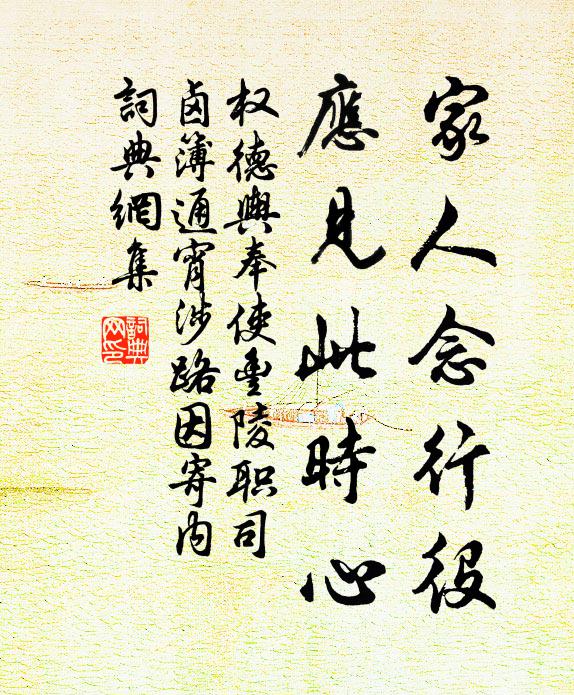 家人念行役
應見此時心
权德輿奉使豐陵职司
鹵簿通宵涉路因寄内
詞典網集
詞典网印